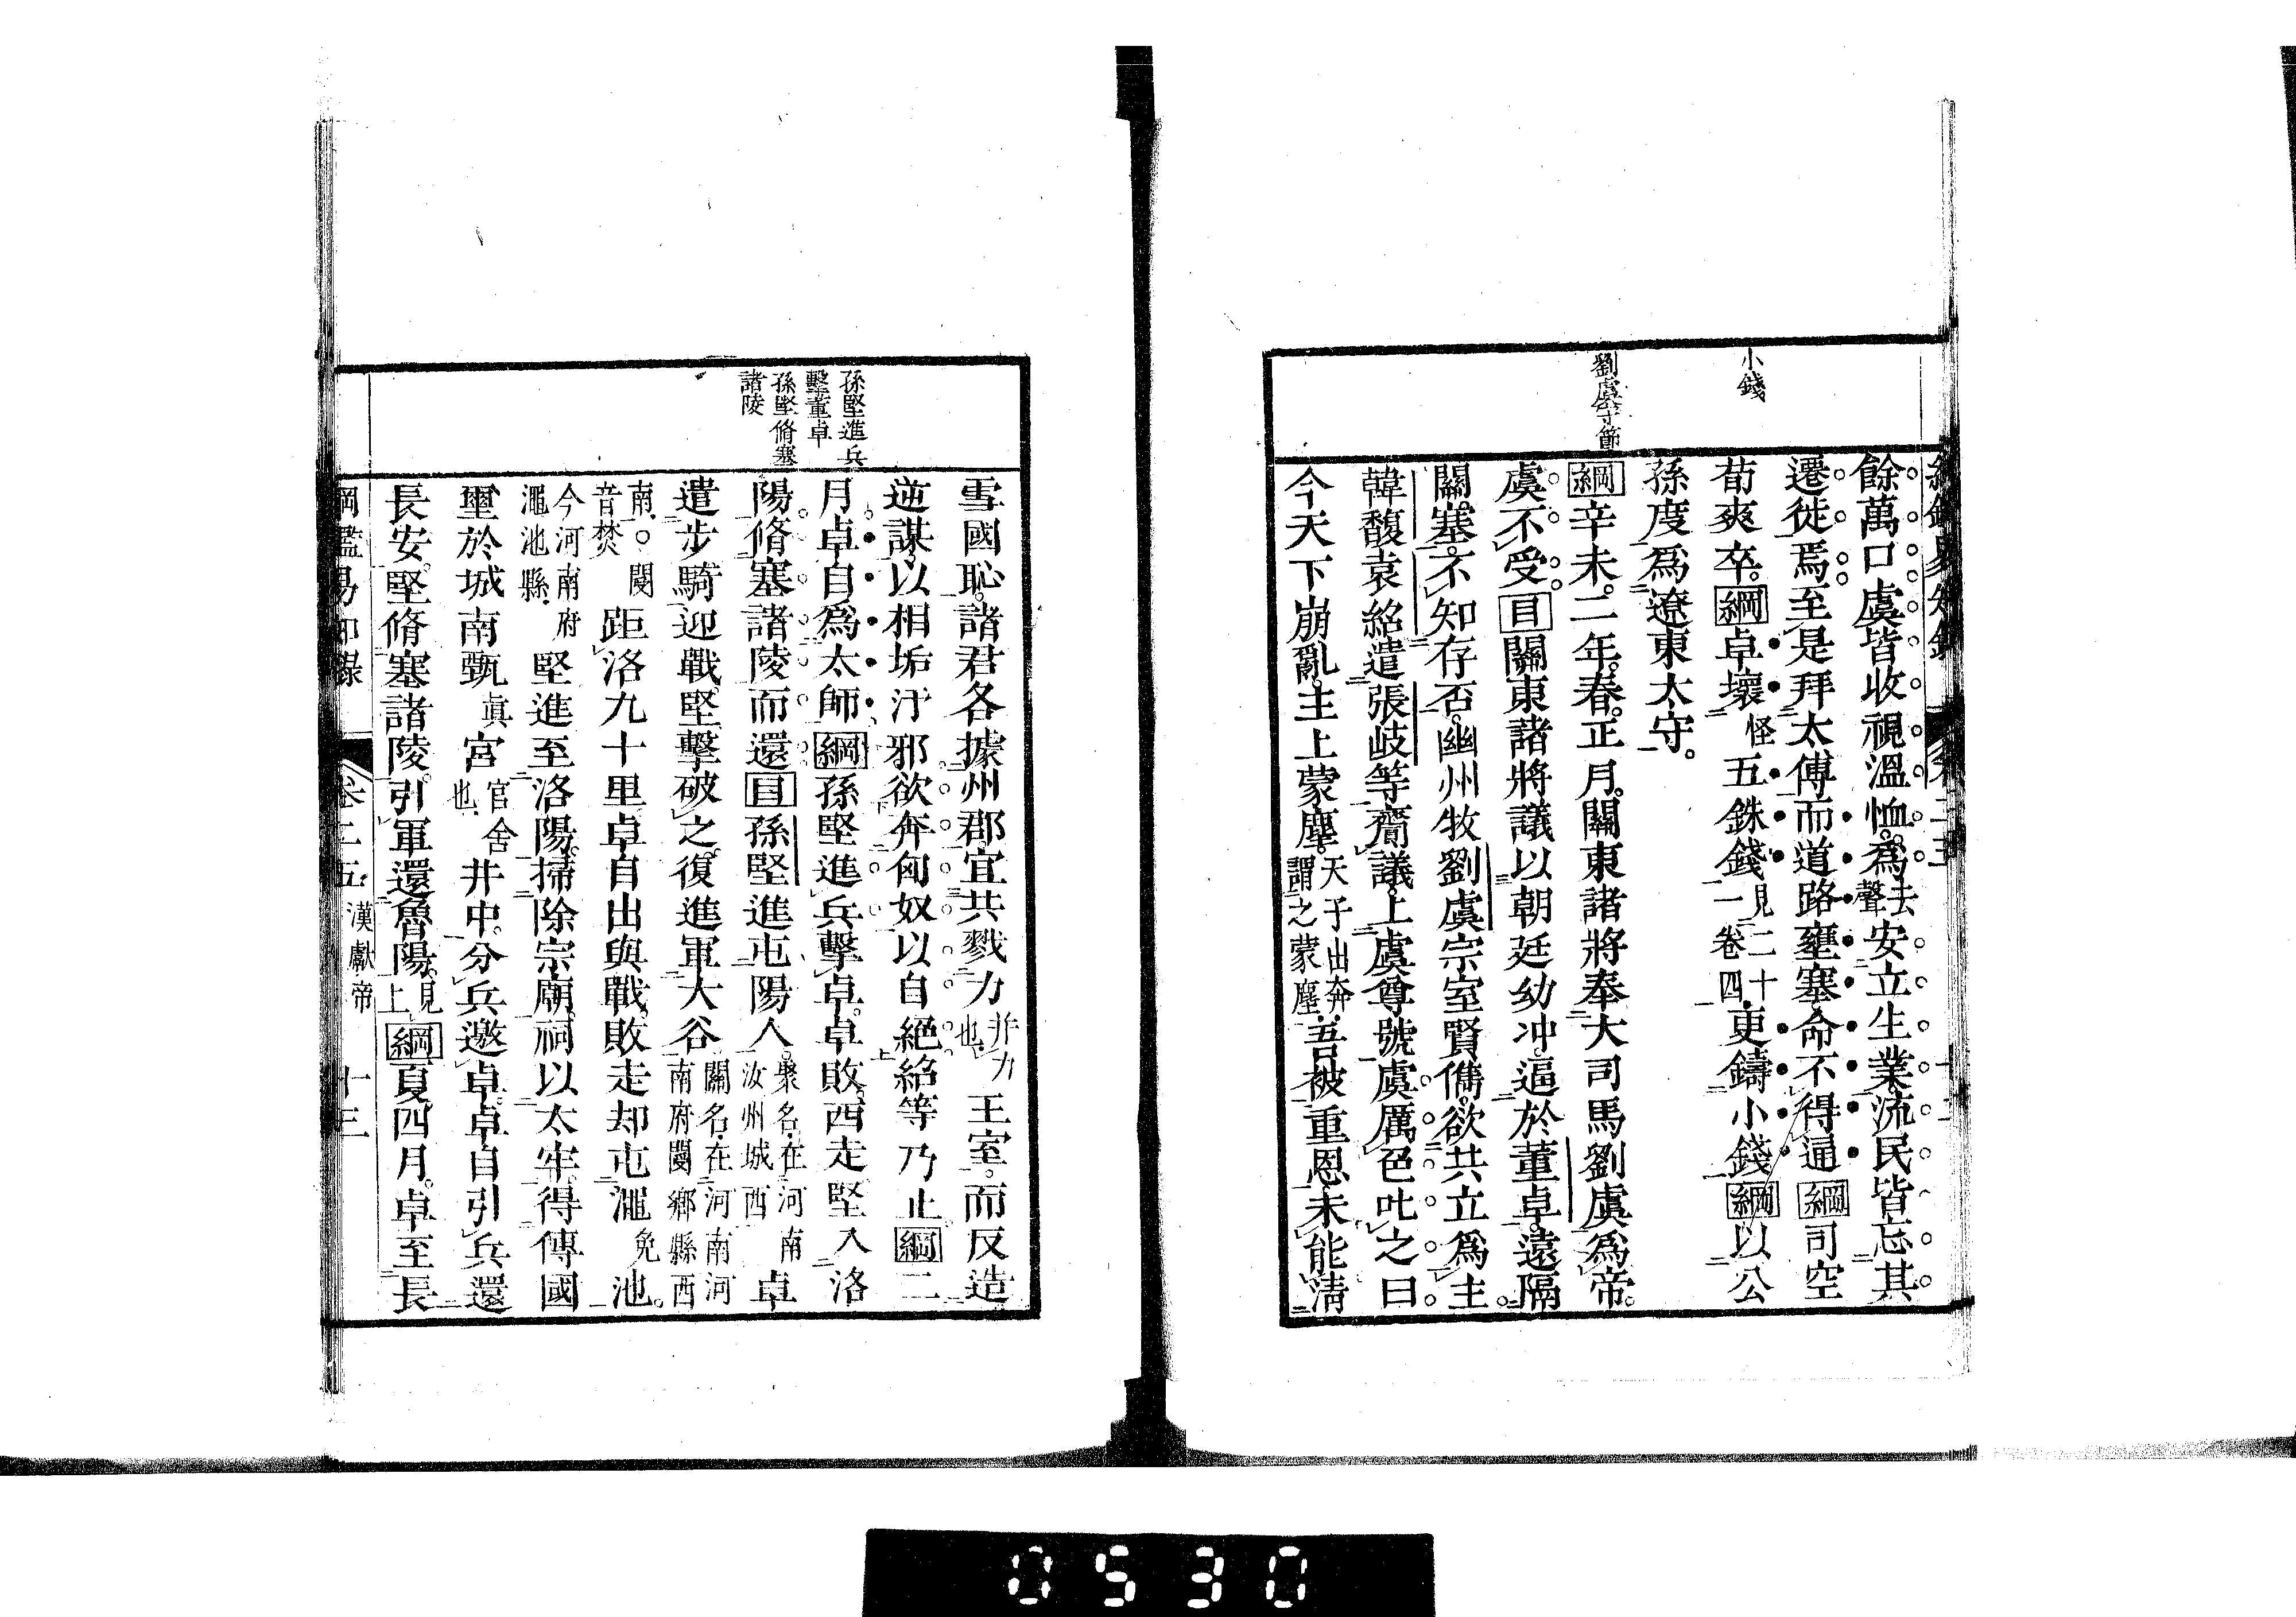 小錢
劉虞守節
餘萬口虞皆收視溫恤爲去聲安立生業流民皆忘其
遷徙焉至是拜太傅而道路壅塞命不得通綱司空
荀爽卒綱卓壞怪五銖錢見二十一卷四更鑄小錢綱以公
孫度爲遼東太守
綱辛未二年春正月關東諸將奉大司馬劉虞爲帝
虞不受目關東諸將議以朝廷幼冲逼於董卓遠隔
關塞不知存否幽州牧劉虞宗室賢儁欲共立爲主
韓馥袁紹遣張岐等齎議上虞尊號虞厲色叱之曰
今天下崩亂主上蒙塵天子出奔謂之蒙塵吾被重恩未能淸
孫堅進兵
擊董卓
孫堅脩塞
諸陵
雪國恥諸君各據州郡宜共戮力并力也王室而反造
逆謀以相垢汙邪欲奔匈奴以自絕紹等乃止綱二
月卓自爲太師綱孫堅進兵擊卓卓敗西走堅入洛
陽脩塞諸陵而還目孫堅進屯陽人聚名在河南汝州城西卓
遣步騎迎戰堅擊破之復進軍大谷關名在河南河南府閿鄉縣西
南○閿音焚距洛九十里卓自出與戰敗走却屯澠免池
今河南府澠池縣堅進至洛陽掃除宗廟祠以太牢得傳國
璽於城南甄眞宮官舍也井中分兵邀卓卓自引兵還
長安堅脩塞諸陵引軍還魯陽見上綱夏四月卓至長
綱鑑易知錄 卷二五 漢獻帝 十三
0530